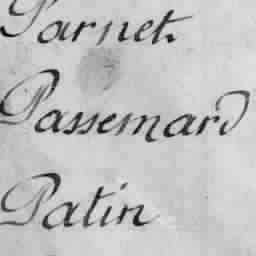 Parnet.
Passemard
Patin